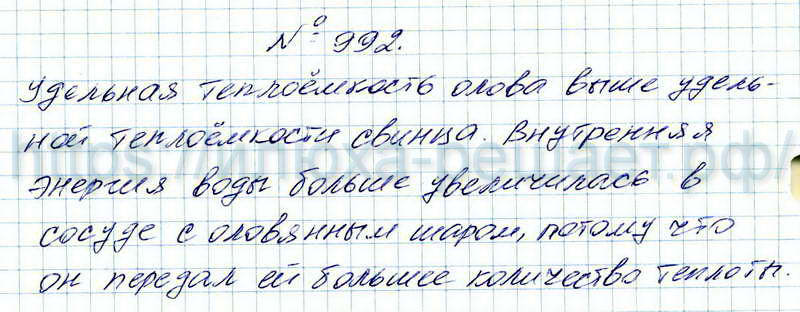 № 992.
Удельная теплоёмкость олова выше удель-
ной теплоёмкости свинца. Внутренняя
энергия воды больше увеличилась в
сосуде с оловянным шаром, потому что
он передал ей большее количество теплоты.